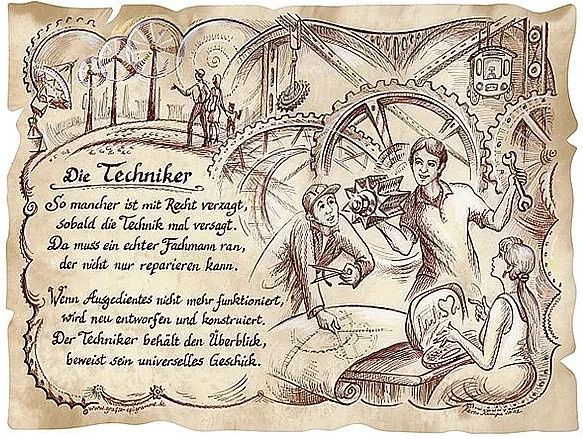 Die Techniker
So mancher ist mit Recht verzagt,
sobald die Technik mal versagt.
Da muss ein echter Fachmann ran,
der nicht nur reparieren kann.
Wenn Ausgedientes nicht mehr funktioniert,
wird neu entworfen und konstruiert.
Der Techniker behält den Überblick,
beweist sein universelles Geschick.